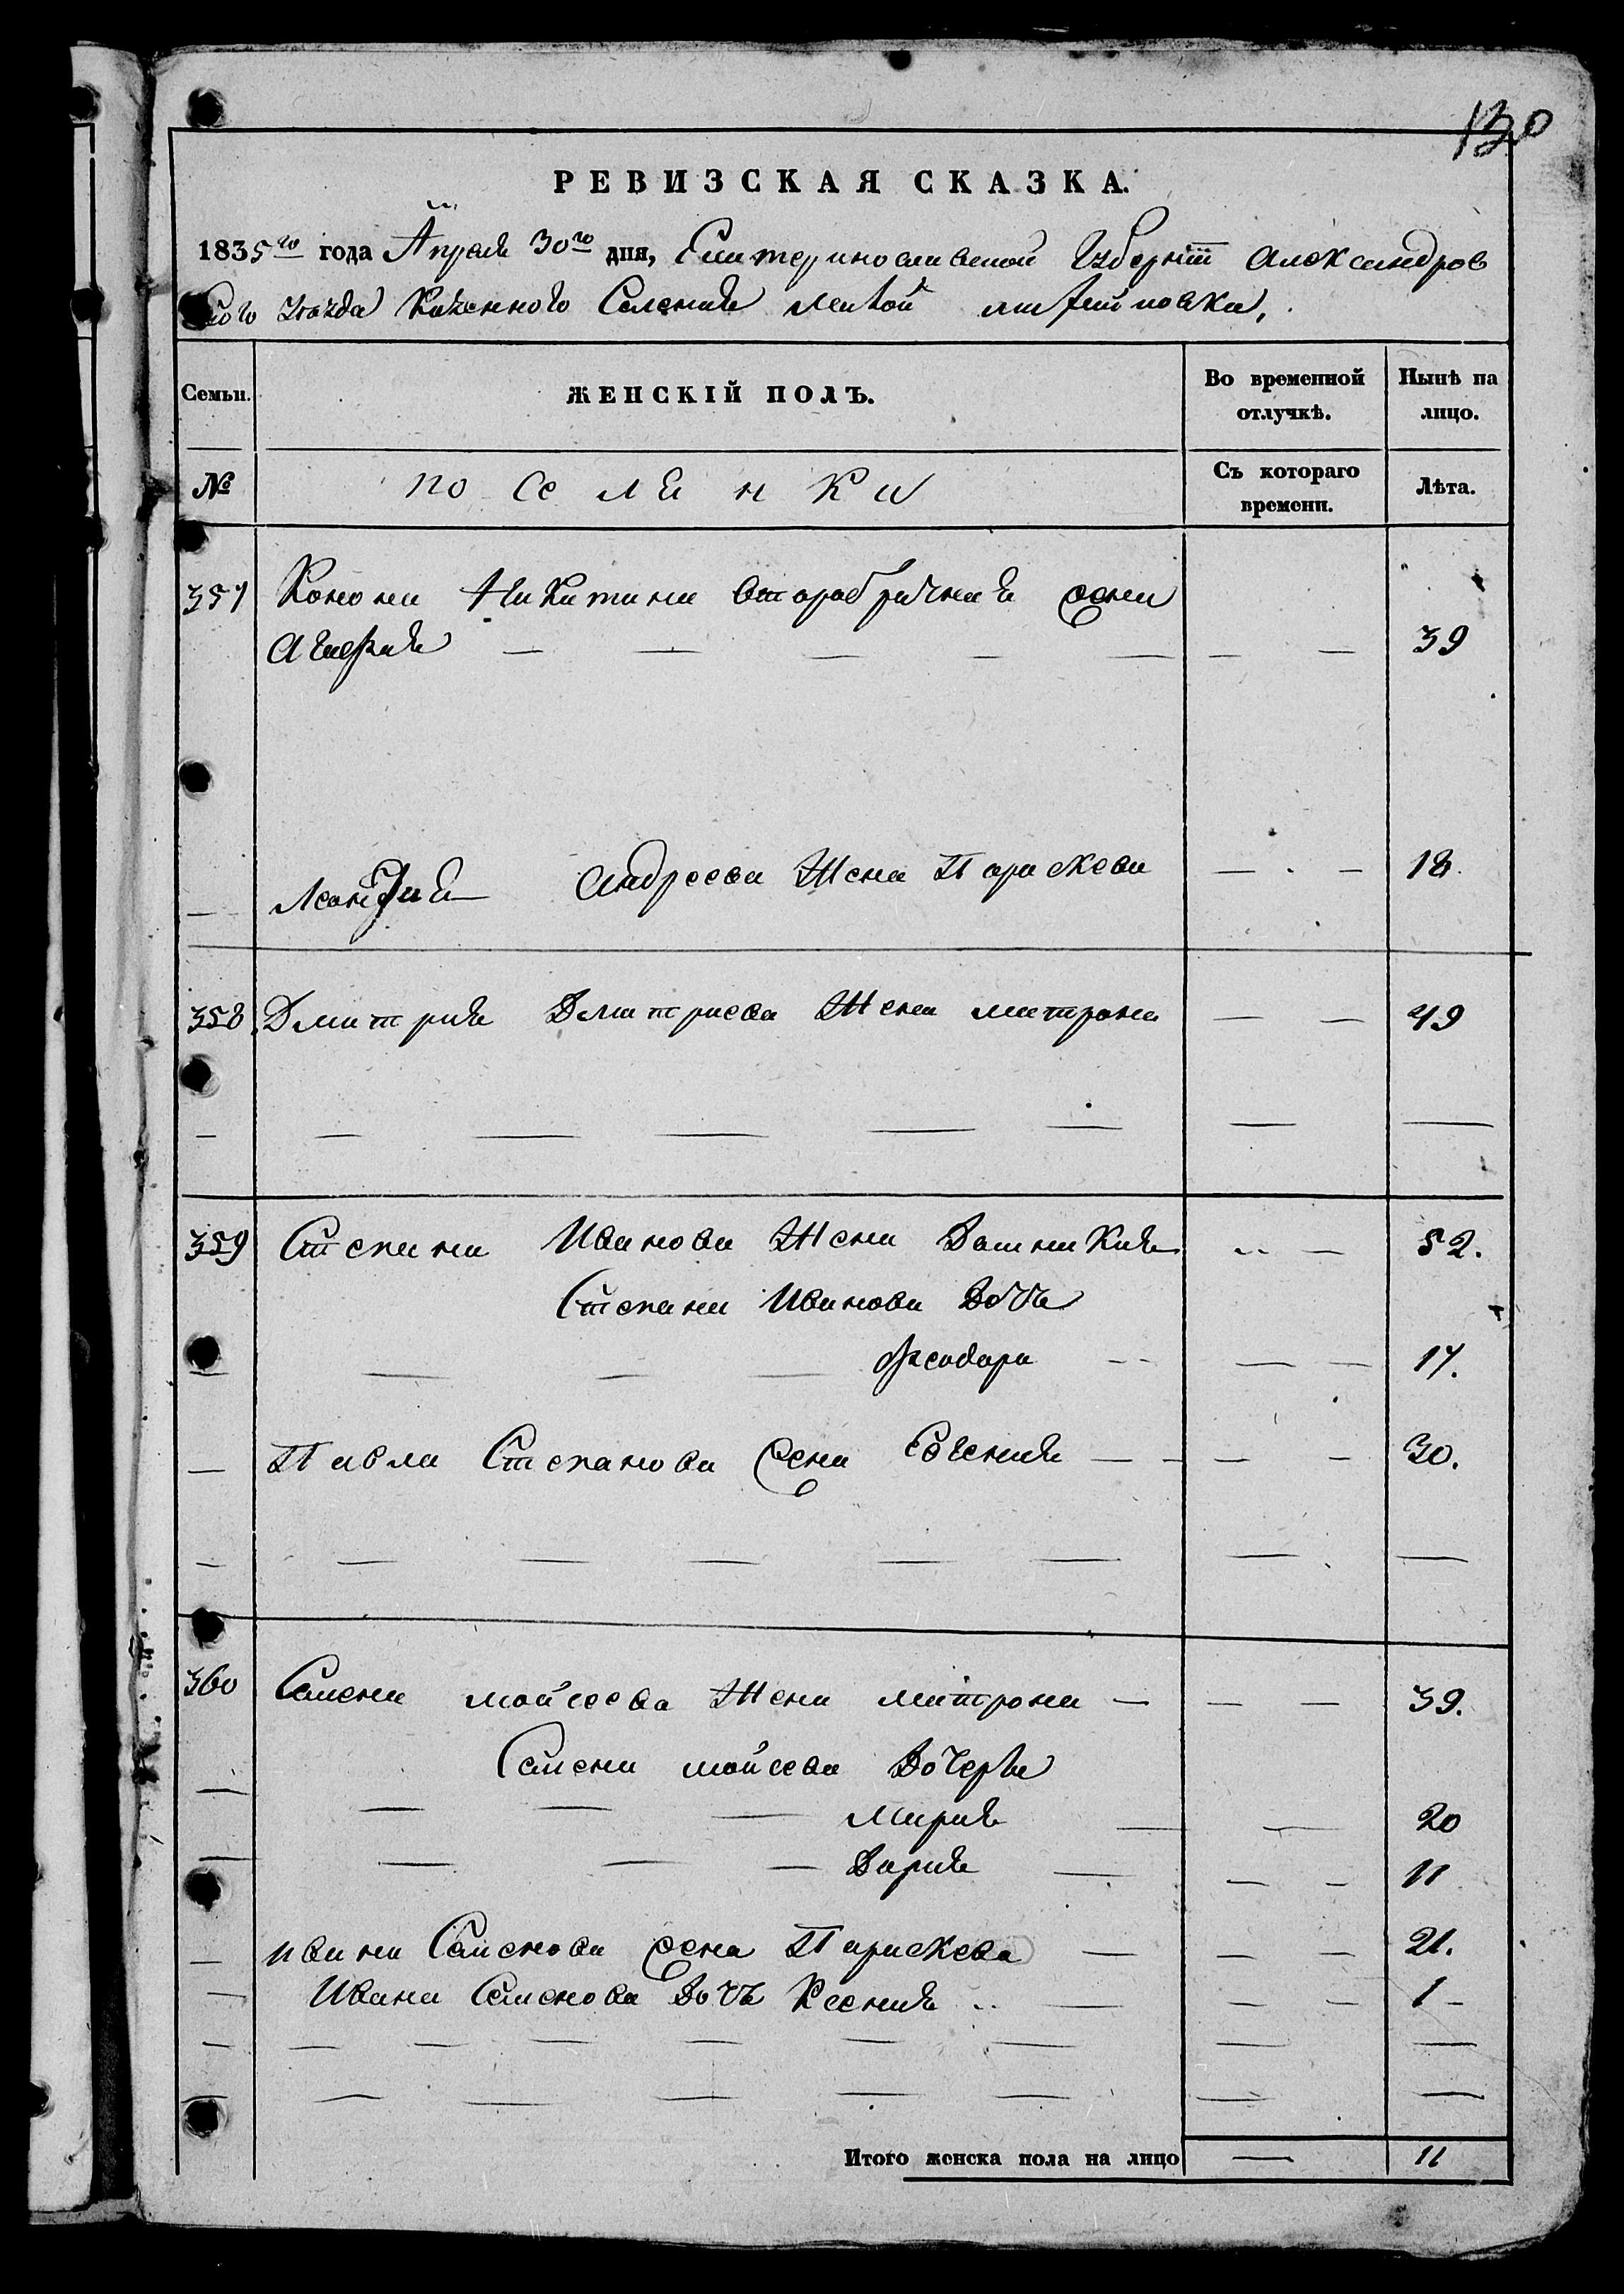 130
РЕВИЗСКАЯ СКАЗКА.
1835го года Апреля 30го дня, Екатеринославской Губерніи Александров
ского уезда Казенного Селения малой
Семьи. ЖЕНСКІЙ ПОЛЪ. Во временной отлучкѣ. Нынѣ на лицо.
№ поселянки Съ котораго времени. Лѣта.
357 Конона Никитина втораобрачная жена
— — — — — — — 39
— Андреева Жена Параскева — — 18.
358 Дмитрия Дмитриева Жена матрона — — 49
— — — — — — — —
359 Степана Иванова Жена Домникия — 52.
Степана Иванова Дочь
— — — — Феодора — — — 17.
— Павла Степанова жена Евгения — — — — 30.
— — — — — — — —
360 Самена мойсеева Жена матрона — — — 39.
Самена мойсева Дочерье
— — — — Мария — — 20
— — — — Дария — — — 11
— ивана Саменова жена Параскева — — — 21.
— Ивана Саменова Дочь Ксения — — — 1 —
— — — — — — — — —
— — — — — — — —
Итого женска пола на лицо — 11